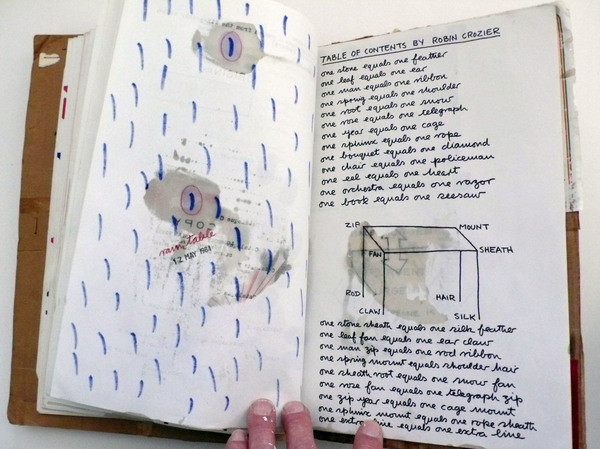 rain table
12 MAY 1981
TABLE OF CONTENTS BY ROBIN CROZIER
one stone equals one feather
one leaf equals one ear
one man equals one ribbon
one spring equals one shoulder
one root equals one snow
one rose equals one telegraph
one year equals one cage
one sphinx equals one rope
one bouquet equals one diamond
one chair equals one policeman
one eel equals one heart
one orchestra equals one razor
one book equals one seesaw
ZIP
MOUNT
FAN
SHEATH
ROD
HAIR
CLAW
SILK
one stone sheath equals one silk feather
one leaf fan equals one ear claw
one man zip equals one rod ribbon
one spring mount equals shoulder hair
one sheath root equals one snow fan
one rose fan equals one telegraph zip
one zip year equals one cage mount
one sphinx mount equals one rope sheath
one extra line equals one extra line